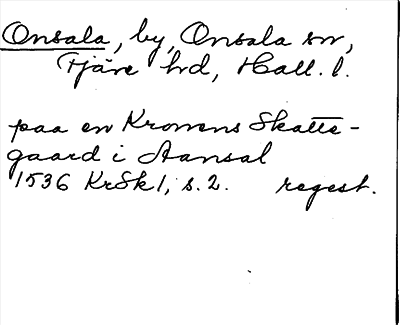 Onsala, by, Onsala sn,
Fjäre hd, Hall. l.
paa en Kronens Skatte-
gaard i Aansal
1536 KrSk 1, s. 2. regest.